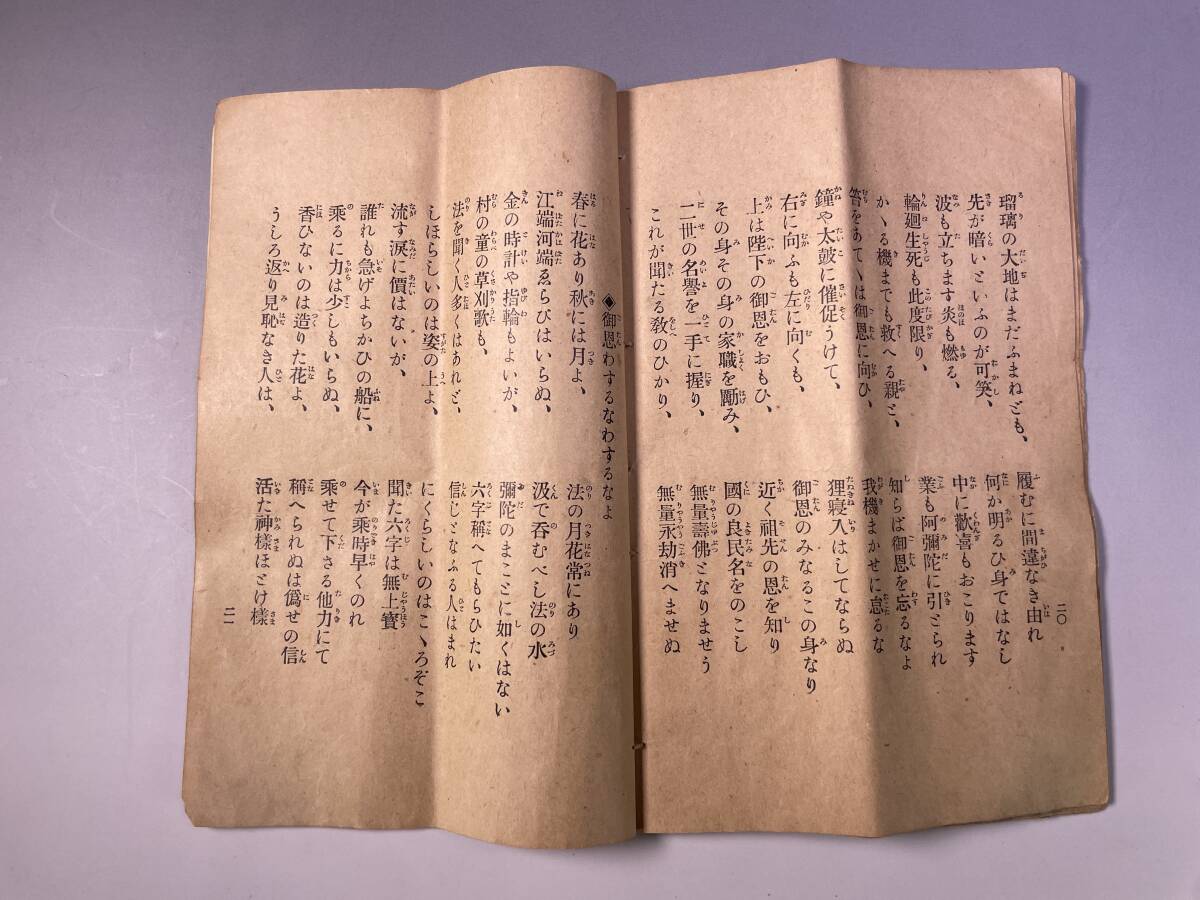 瑠璃の大地はまだふまねども、履むに間違なき由れ
先が暗いといふのが可笑、何か明るひ身ではなし
波も立ちます炎も燃る、中に歡喜もおこります
輪廻生死も此度限り、業も阿彌陀に引とられ
かゝる機までも救へる親と、知らば御恩を忘るなよ
答をあてゝは御恩に向ひ、我機まかせに怠るな
鐘や太皷に催促うけて、狸寢入はしてならぬ
右に向ふも左に向くも、御恩のみなるこの身なり
上は陛下の御恩をおもひ、近く祖先の恩を知り
その身その身の家職を勵み、國の良民名をのこし
二世の名譽を一手に握り、無量壽佛となりませう
これが聞たる敎のひかり、無量永劫消へませぬ
二〇
◈御恩わするなわするなよ
春に花あり秋には月よ、法の月花常にあり
江端河端ゑらびはいらぬ、汲で呑むべし法の水
金の時計や指輪もよいが、彌陀のまことに如くはない
村の童の草刈歌も、六字稱へてもらひたい
法を聞く人多くはあれど、信じとなふる人はまれ
しほらしいのは姿の上よ、にくらしいのはこゝろぞこ
流す淚に價はないが、聞た六字は無上寳
誰れも急げよちかひの船に、今が乘時早くのれ
乘るに力は少しもいらぬ、乘せて下さる他力にて
香ひないのは造りた花よ、稱へられぬは僞せの信
うしろ返り見恥なき人は、活た神樣ほとけ樣
二一